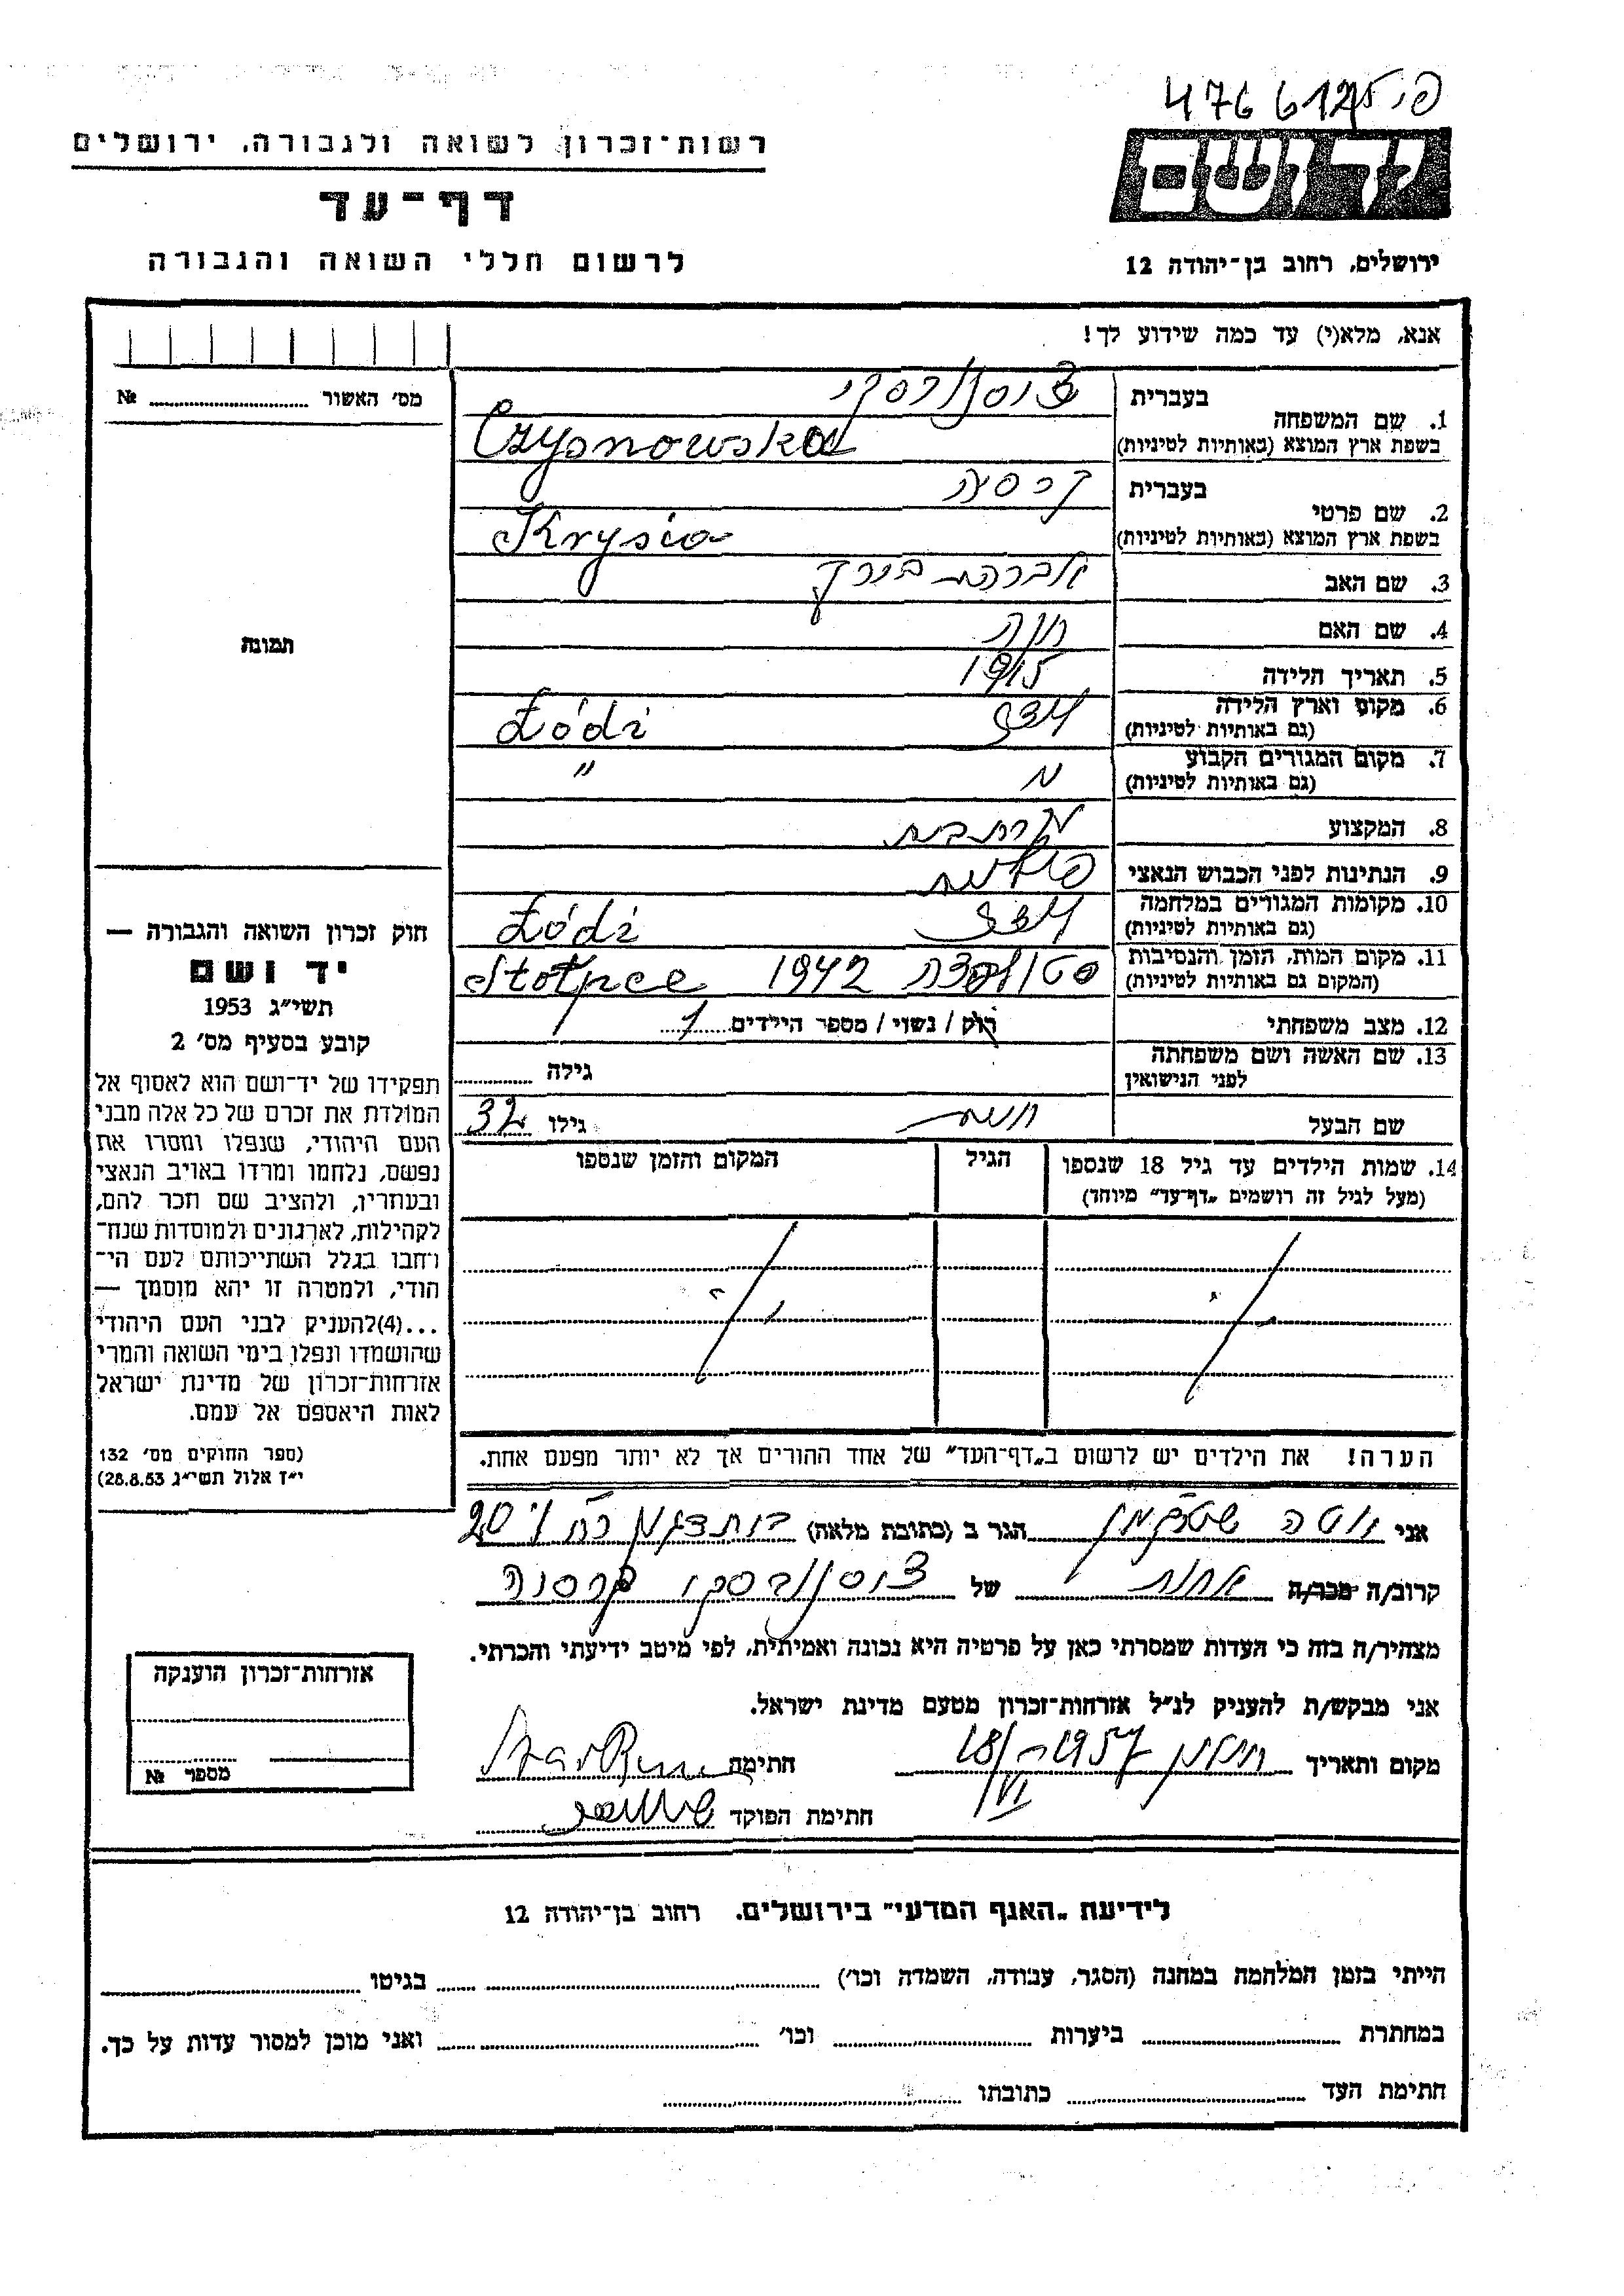 476 612
רשות־זכרון לשואה ולגבורה, ירושלים
יד ושם
דף־עד
לרשום חללי השואה והגבורה
ירושלים, רחוב בן־יהודה 12
אנא, מלא(י) עד כמה שידוע לך!
מס׳ האשור № ........
בעברית
1. שם המשפחה
בשפת ארץ המוצא (באותיות לטיניות) Czysnowska
בעברית
2. שם פרטי
בשפת ארץ המוצא (באותיות לטיניות) Krysia
3. שם האב אברהם
4. שם האם חנה
5. תאריך הלידה 1915
6. מקום וארץ הלידה לודז׳ Łódź
(גם באותיות לטיניות)
7. מקום המגורים הקבוע "
(גם באותיות לטיניות)
8. המקצוע
9. הנתינות לפני הכבוש הנאצי פולנית
10. מקומות המגורים במלחמה לודז׳ Łódź
(גם באותיות לטיניות)
11. מקום המות, הזמן והנסיבות 1942 Stołpce
(המקום גם באותיות לטיניות)
12. מצב משפחתי רווק / נשוי / מספר הילדים 1
13. שם האשה ושם משפחתה
לפני הנישואין גילה ........
שם הבעל גילו 32
14. שמות הילדים עד גיל 18 שנספו
(מעל לגיל זה רושמים „דף־עד״ מיוחד)
הגיל
המקום והזמן שנספו
הערה! את הילדים יש לרשום ב„דף־העד״ של אחד ההורים אך לא יותר מפעם אחת.
תמונה
חוק זכרון השואה והגבורה —
יד ושם
תשי״ג 1953
קובע בסעיף מס׳ 2
תפקידו של יד־ושם הוא לאסוף אל
המולדת את זכרם של כל אלה מבני
העם היהודי, שנפלו ומסרו את
נפשם, נלחמו ומרדו באויב הנאצי
ובעוזריו, ולהציב שם וזכר להם,
לקהילות, לארגונים ולמוסדות שנח־
רבו בגלל השתייכותם לעם הי־
הודי, ולמטרה זו יהא מוסמך —
...(4)להעניק לבני העם היהודי
שהושמדו ונפלו בימי השואה והמרי
אזרחות־זכרון של מדינת ישראל
לאות היאספם אל עמם.
(ספר החוקים מס׳ 132
י״ז אלול תשי״ג 28.8.53)
אני הגר ב (כתובת מלאה) 20
קרוב/ה מכר/ה אחות של
מצהיר/ה בזה כי העדות שמסרתי כאן על פרטיה היא נכונה ואמיתית, לפי מיטב ידיעתי והכרתי.
אני מבקש/ת להעניק לנ״ל אזרחות־זכרון מטעם מדינת ישראל.
מקום ותאריך חולון 18/VI 1957 חתימה
חתימת הפוקד
אזרחות־זכרון הוענקה
מספר №
לידיעת „האגף המדעי״ בירושלים, רחוב בן־יהודה 12
הייתי בזמן המלחמה במחנה (הסגר, עבודה, השמדה וכו׳) ........ בגיטו ........
במחתרת ........ ביערות ........ וכו׳ ........ ואני מוכן למסור עדות על כך.
חתימת העד ........ כתובתו ........